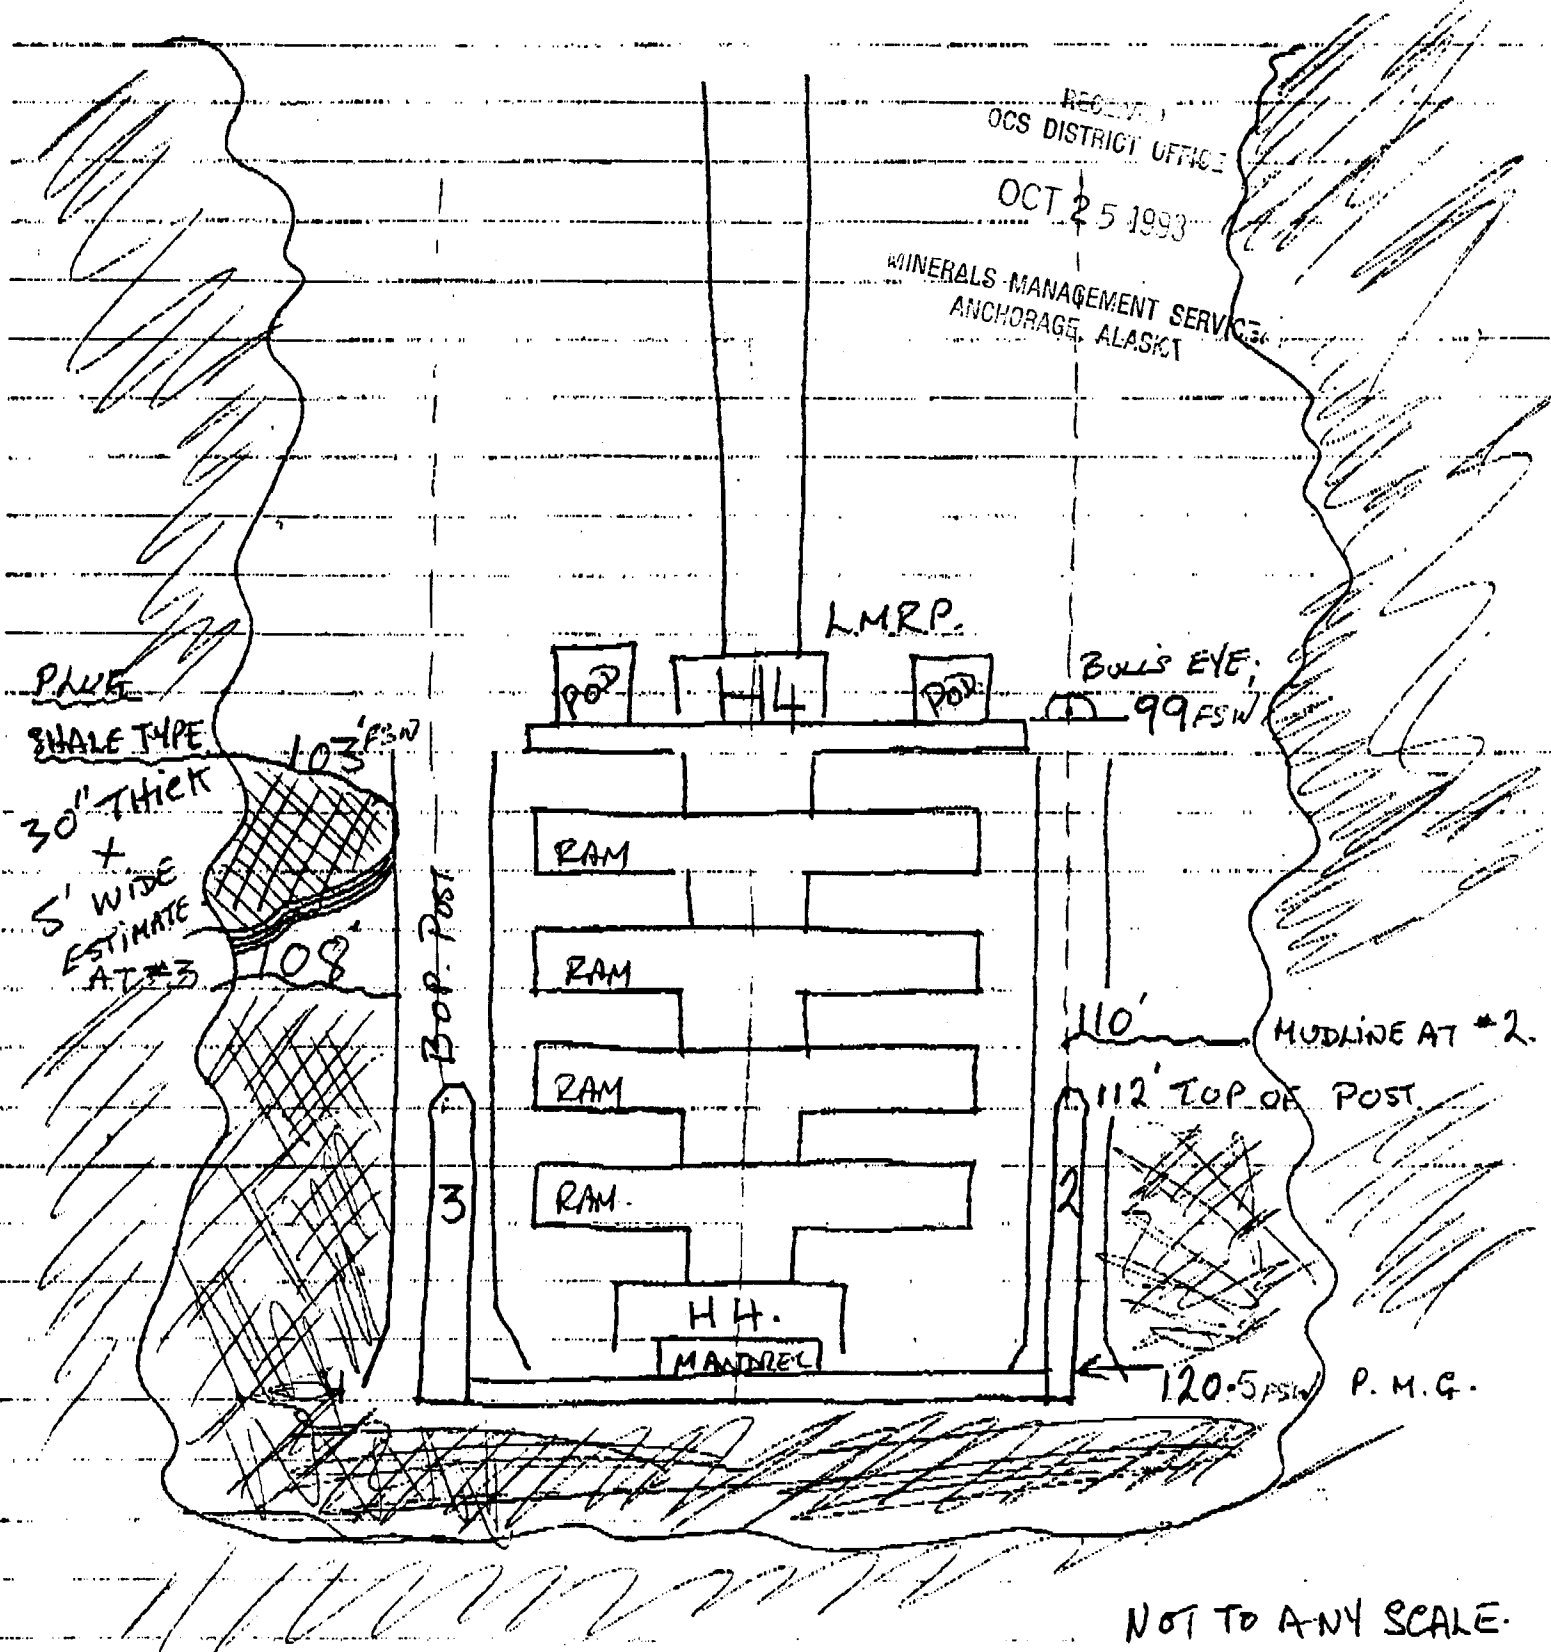 OCS DISTRICT OFFICE
OCT 25 1993
MINERALS MANAGEMENT SERVICE
ANCHORAGE, ALASKA
L.M.R.P.
POD
H4
POD.
BULL'S EYE;
99 FSW
PLUG
SHALE TYPE
103' FSW
30" THICK
+
5' WIDE
ESTIMATE
AT #3
108'
B.O.P. POST
RAM
RAM
RAM
RAM.
110'
MUDLINE AT #2.
112' TOP OF POST
3
2
H4.
MANDREL
120.5 FSW P.M.G.
NOT TO ANY SCALE.